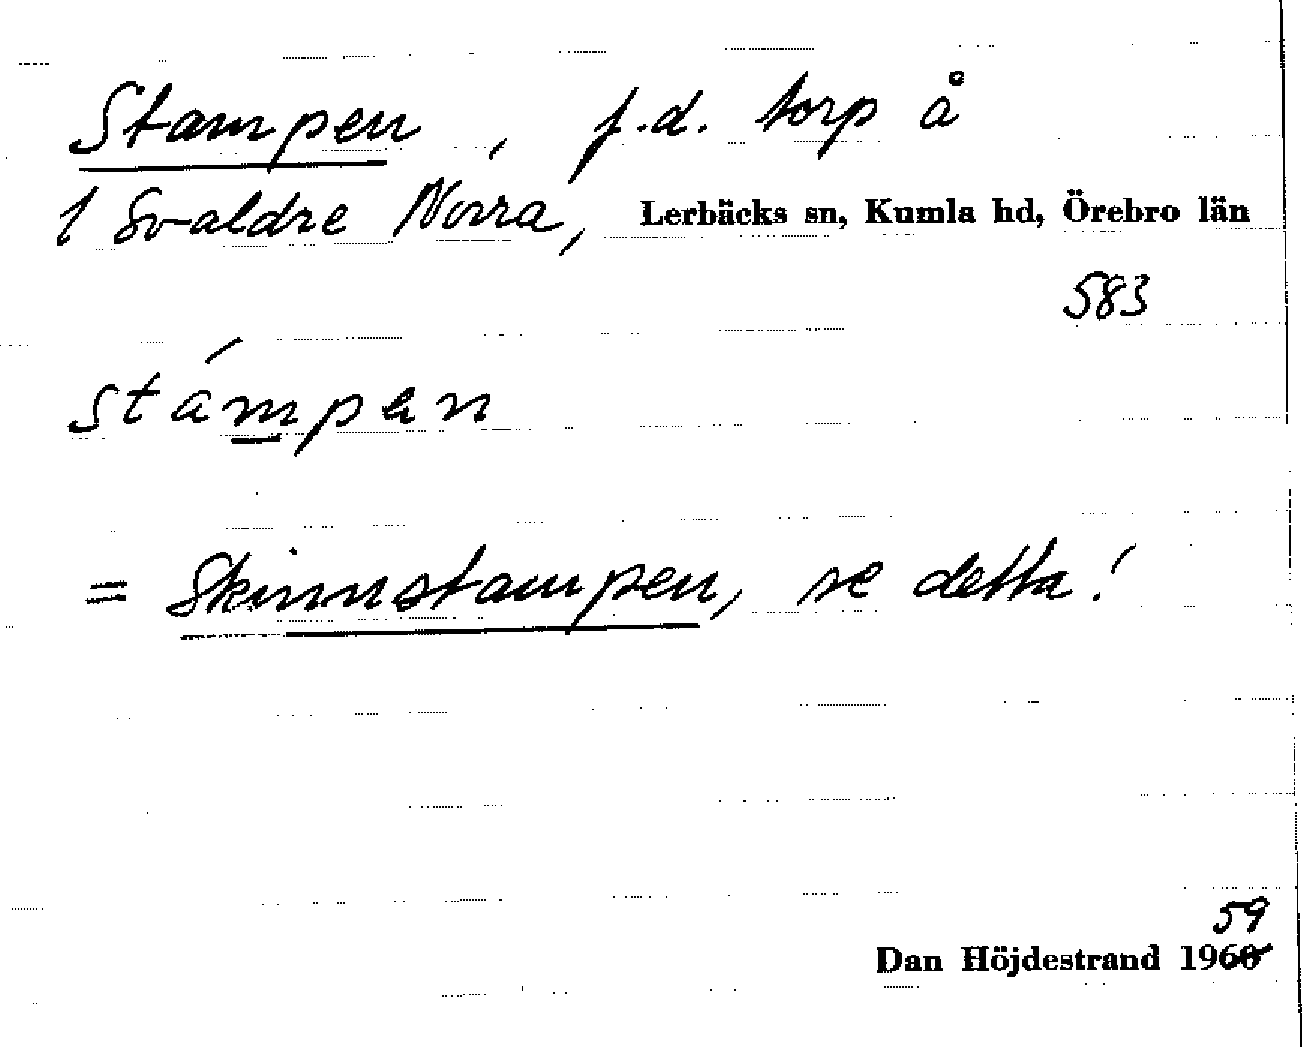 Stampen, f.d. torp å
1 Svaldre Norra, Lerbäcks sn, Kumla hd, Örebro län
583
stámpen
= Skinnstampen, se detta!
59
Dan Höjdestrand 1960